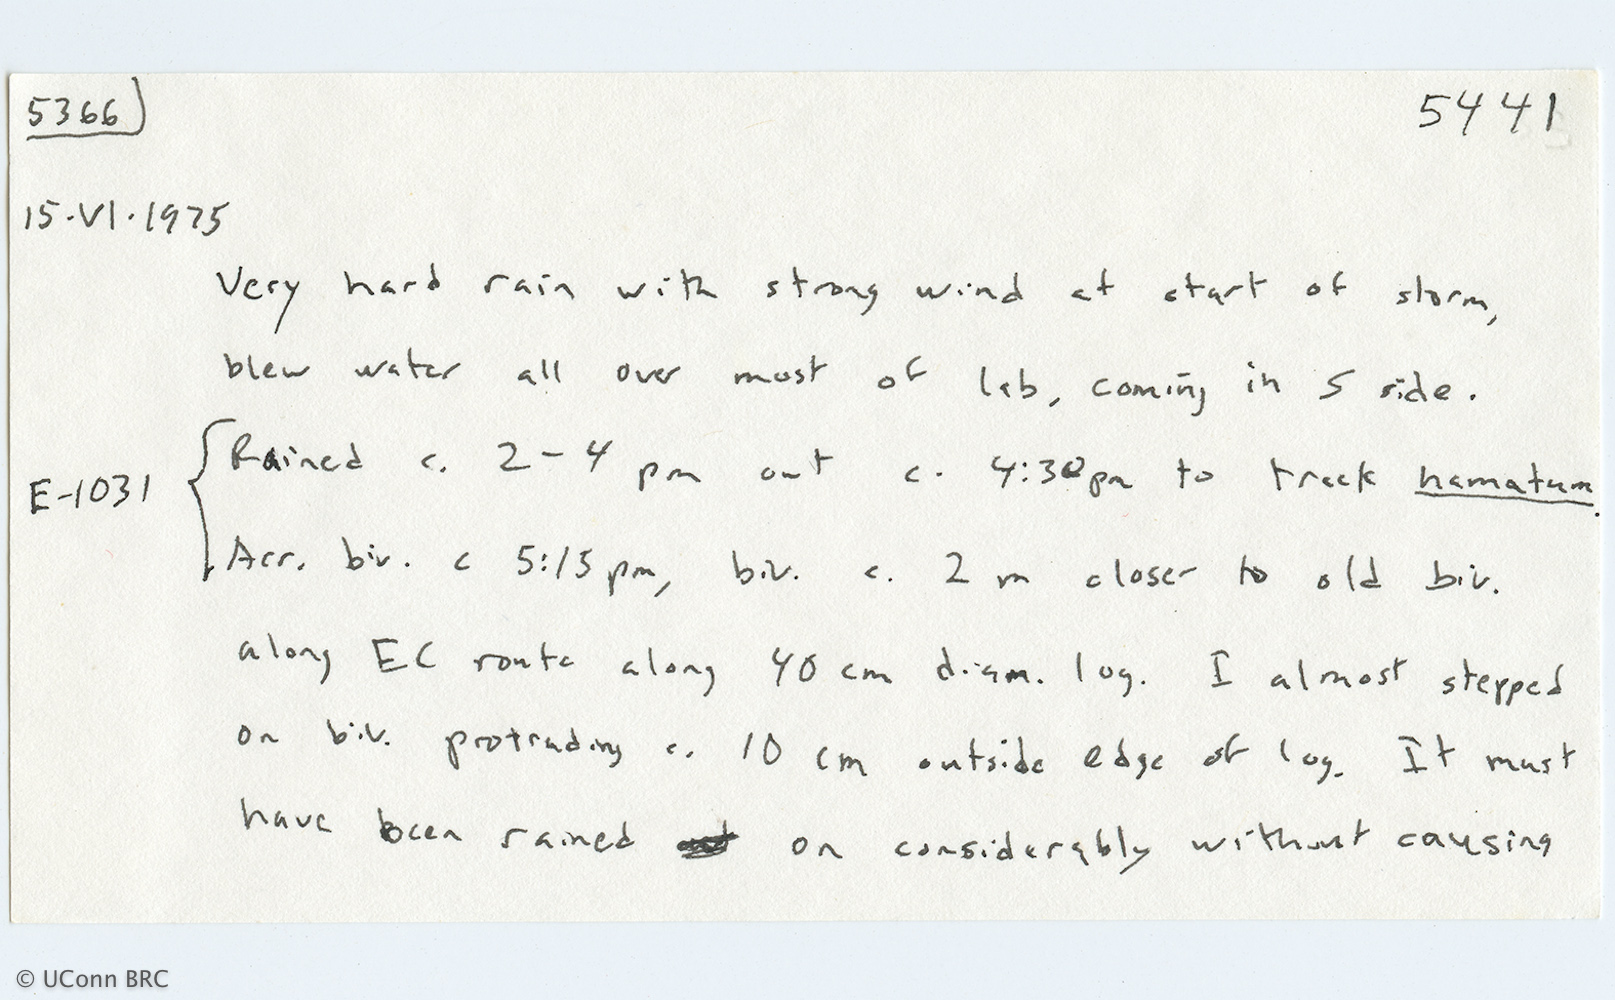 5366) 5441
15·VI·1975
Very hard rain with strong wind at start of storm,
blew water all over most of lab, coming in S side.
Rained c. 2-4 pm out c. 4:30pm to track hamatum.
E-1031
Arr. biv. c 5:15pm, biv. c. 2 m closer to old biv.
along EC route along 40 cm diam. log. I almost stepped
on biv. protruding c. 10 cm outside edge of log. It must
have been rained on considerably without causing
© UConn BRC